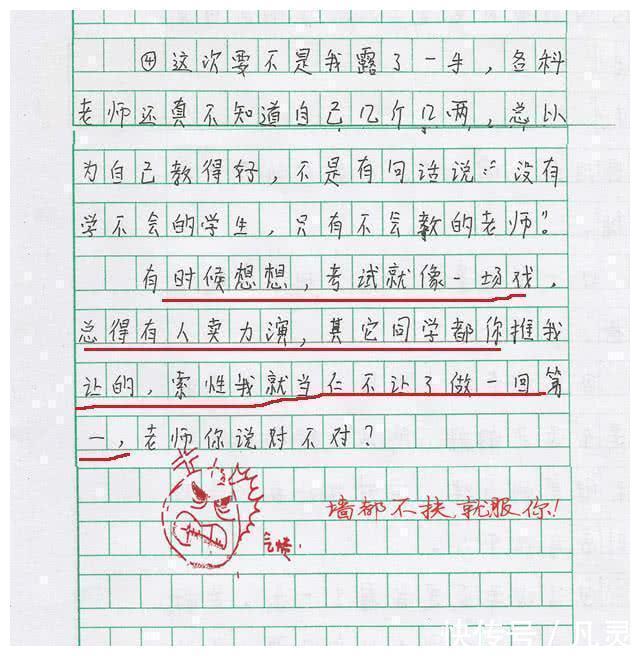 ④这次要不是我露了一手，各科
老师还真不知道自己几个几两，总以
为自己教得好，不是有句话说："没有
学不会的学生，只有不会教的老师"。
有时候想想，考试就像一场戏，
总得有人卖力演，其它同学都你推我
让的，索性我就当仁不让了做一回第
一，老师你说对不对？
墙都不扶就服你！
气愤.
快传号/凡灵